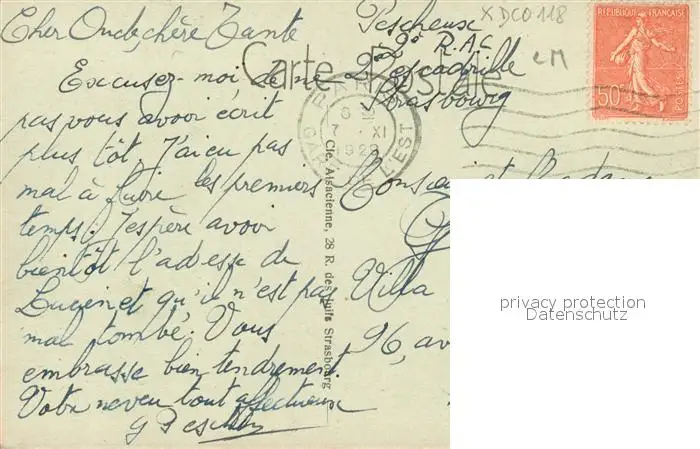 Cher Oncle, chère Tante
Excusez-moi de ne
pas vous avoir écrit
plus tôt. J'ai eu pas
mal à faire les premiers
temps. J'espère avoir
bientôt l'adresse de
Lucien et qu'il n'est pas
mal tombé. Vous
embrasse bien tendrement.
Votre neveu tout affectueux
X DCO 118
LM
2e R.A.C
2e escadrille
Strasbourg
Carte Postale
REPUBLIQUE FRANÇAISE
50c
POSTES
PARIS
7 XI
1929
GARE DE L'EST
Cie. Alsacienne, 28 R. des Juifs Strasbourg
Monsieur et Madame
Villa
96, av
privacy protection
Datenschutz